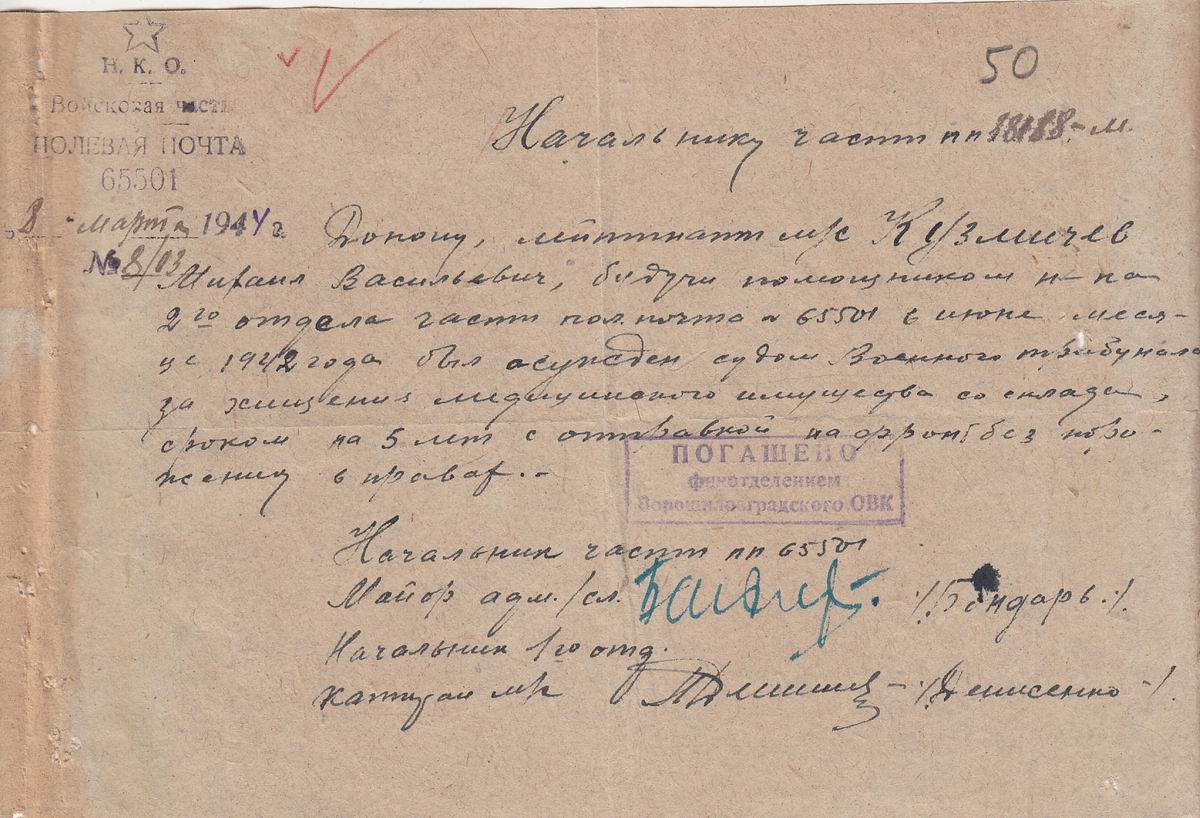 50
Н. К. О.
Войсковая часть
ПОЛЕВАЯ ПОЧТА
65501
8 - марта 1944 г.
№ 8/03
Начальнику части пп 18188-м.
Доношу, лейтенант м/с Кузмичев
Михаил Васильевич, будучи помощником н-ка
2го отдела части пол. почта ~ 65501 в июне меся-
це 1942 года был осужден судом Военного трибунала
за хищения медицинского имущества со склада,
сроком на 5 лет с отправкой на фронт без пора-
жения в правах. -
ПОГАШЕНО
финотделением
Ворошиловградского ОВК
Начальник части пп 65501
Майор адм./сл. /Бондарь./
Начальник 1го отд.
капитан м/с - /Денисенко-/.